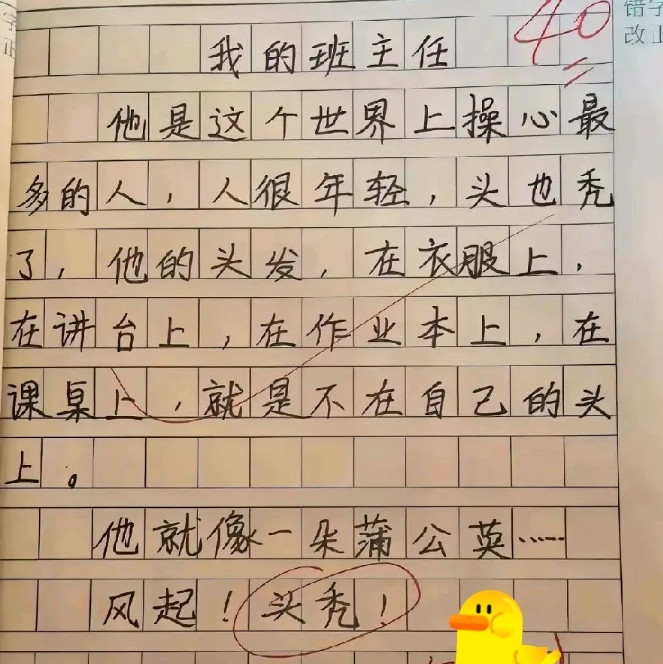 40
错字
改正
我的班主任
他是这个世界上操心最
多的人，人很年轻，头也秃
了，他的头发，在衣服上，
在讲台上，在作业本上，在
课桌上，就是不在自己的头
上。
他就像一朵蒲公英……
风起！头秃！